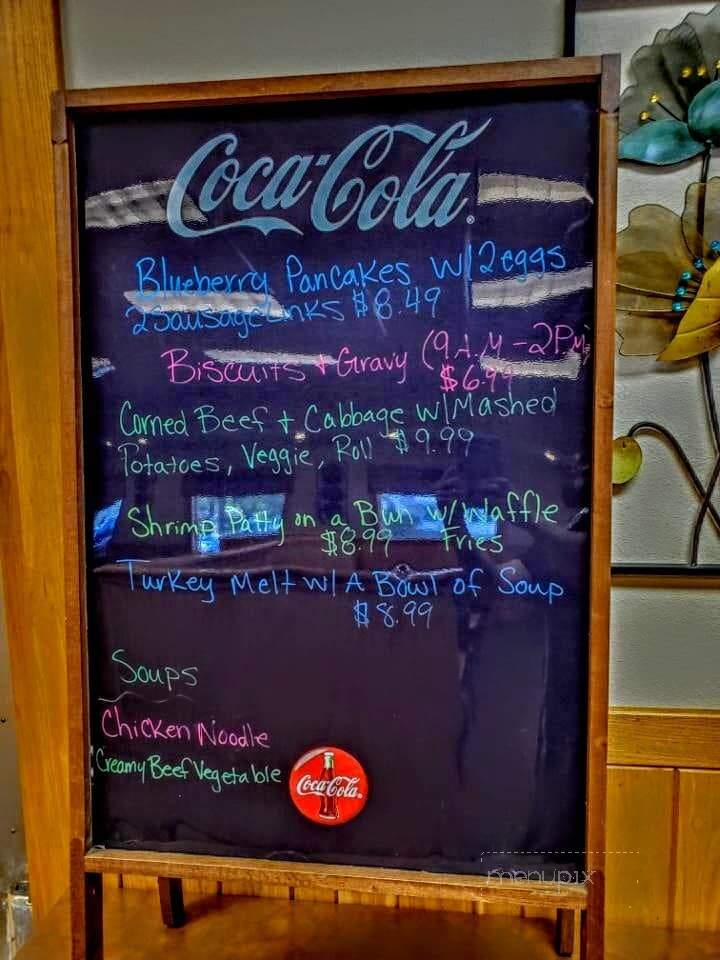 Coca-Cola
Blueberry Pancakes w/2eggs
2 Sausage Links $8.49
Biscuits + Gravy (9A.M-2PM)
$6.99
Corned Beef + Cabbage w/Mashed
Potatoes, Veggie, Roll $9.99
Shrimp Patty on a Bun w/Waffle
$8.99 Fries
Turkey Melt w/ A Bowl of Soup
$8.99
Soups
Chicken Noodle
Creamy Beef Vegetable
Coca-Cola
menupix